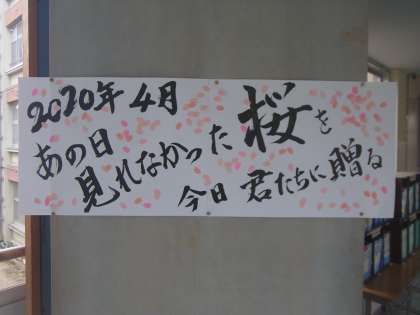 2020年4月
あの日
見れなかった桜を
今日 君たちに贈る